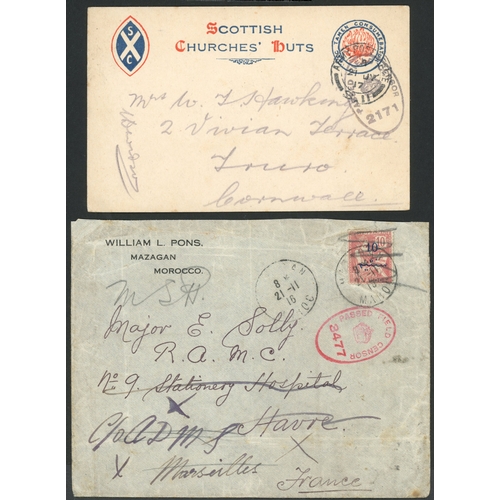 S C
SCOTTISH
CHURCHES' HUTS
TAMEN CONSUMEBATUR
CENSOR
2171
Mrs W. J. Hawking
2 Vivian Terrace
Truro
Cornwall
WILLIAM L. PONS.
MAZAGAN
MOROCCO.
10
10
8
21-11
16
MSH.
PASSED FIELD CENSOR
2477
Major E. Solly.
R.A.M.C.
No 9. Stationery Hospital
C/o A D M S Havre
X
X
X Marseilles
France